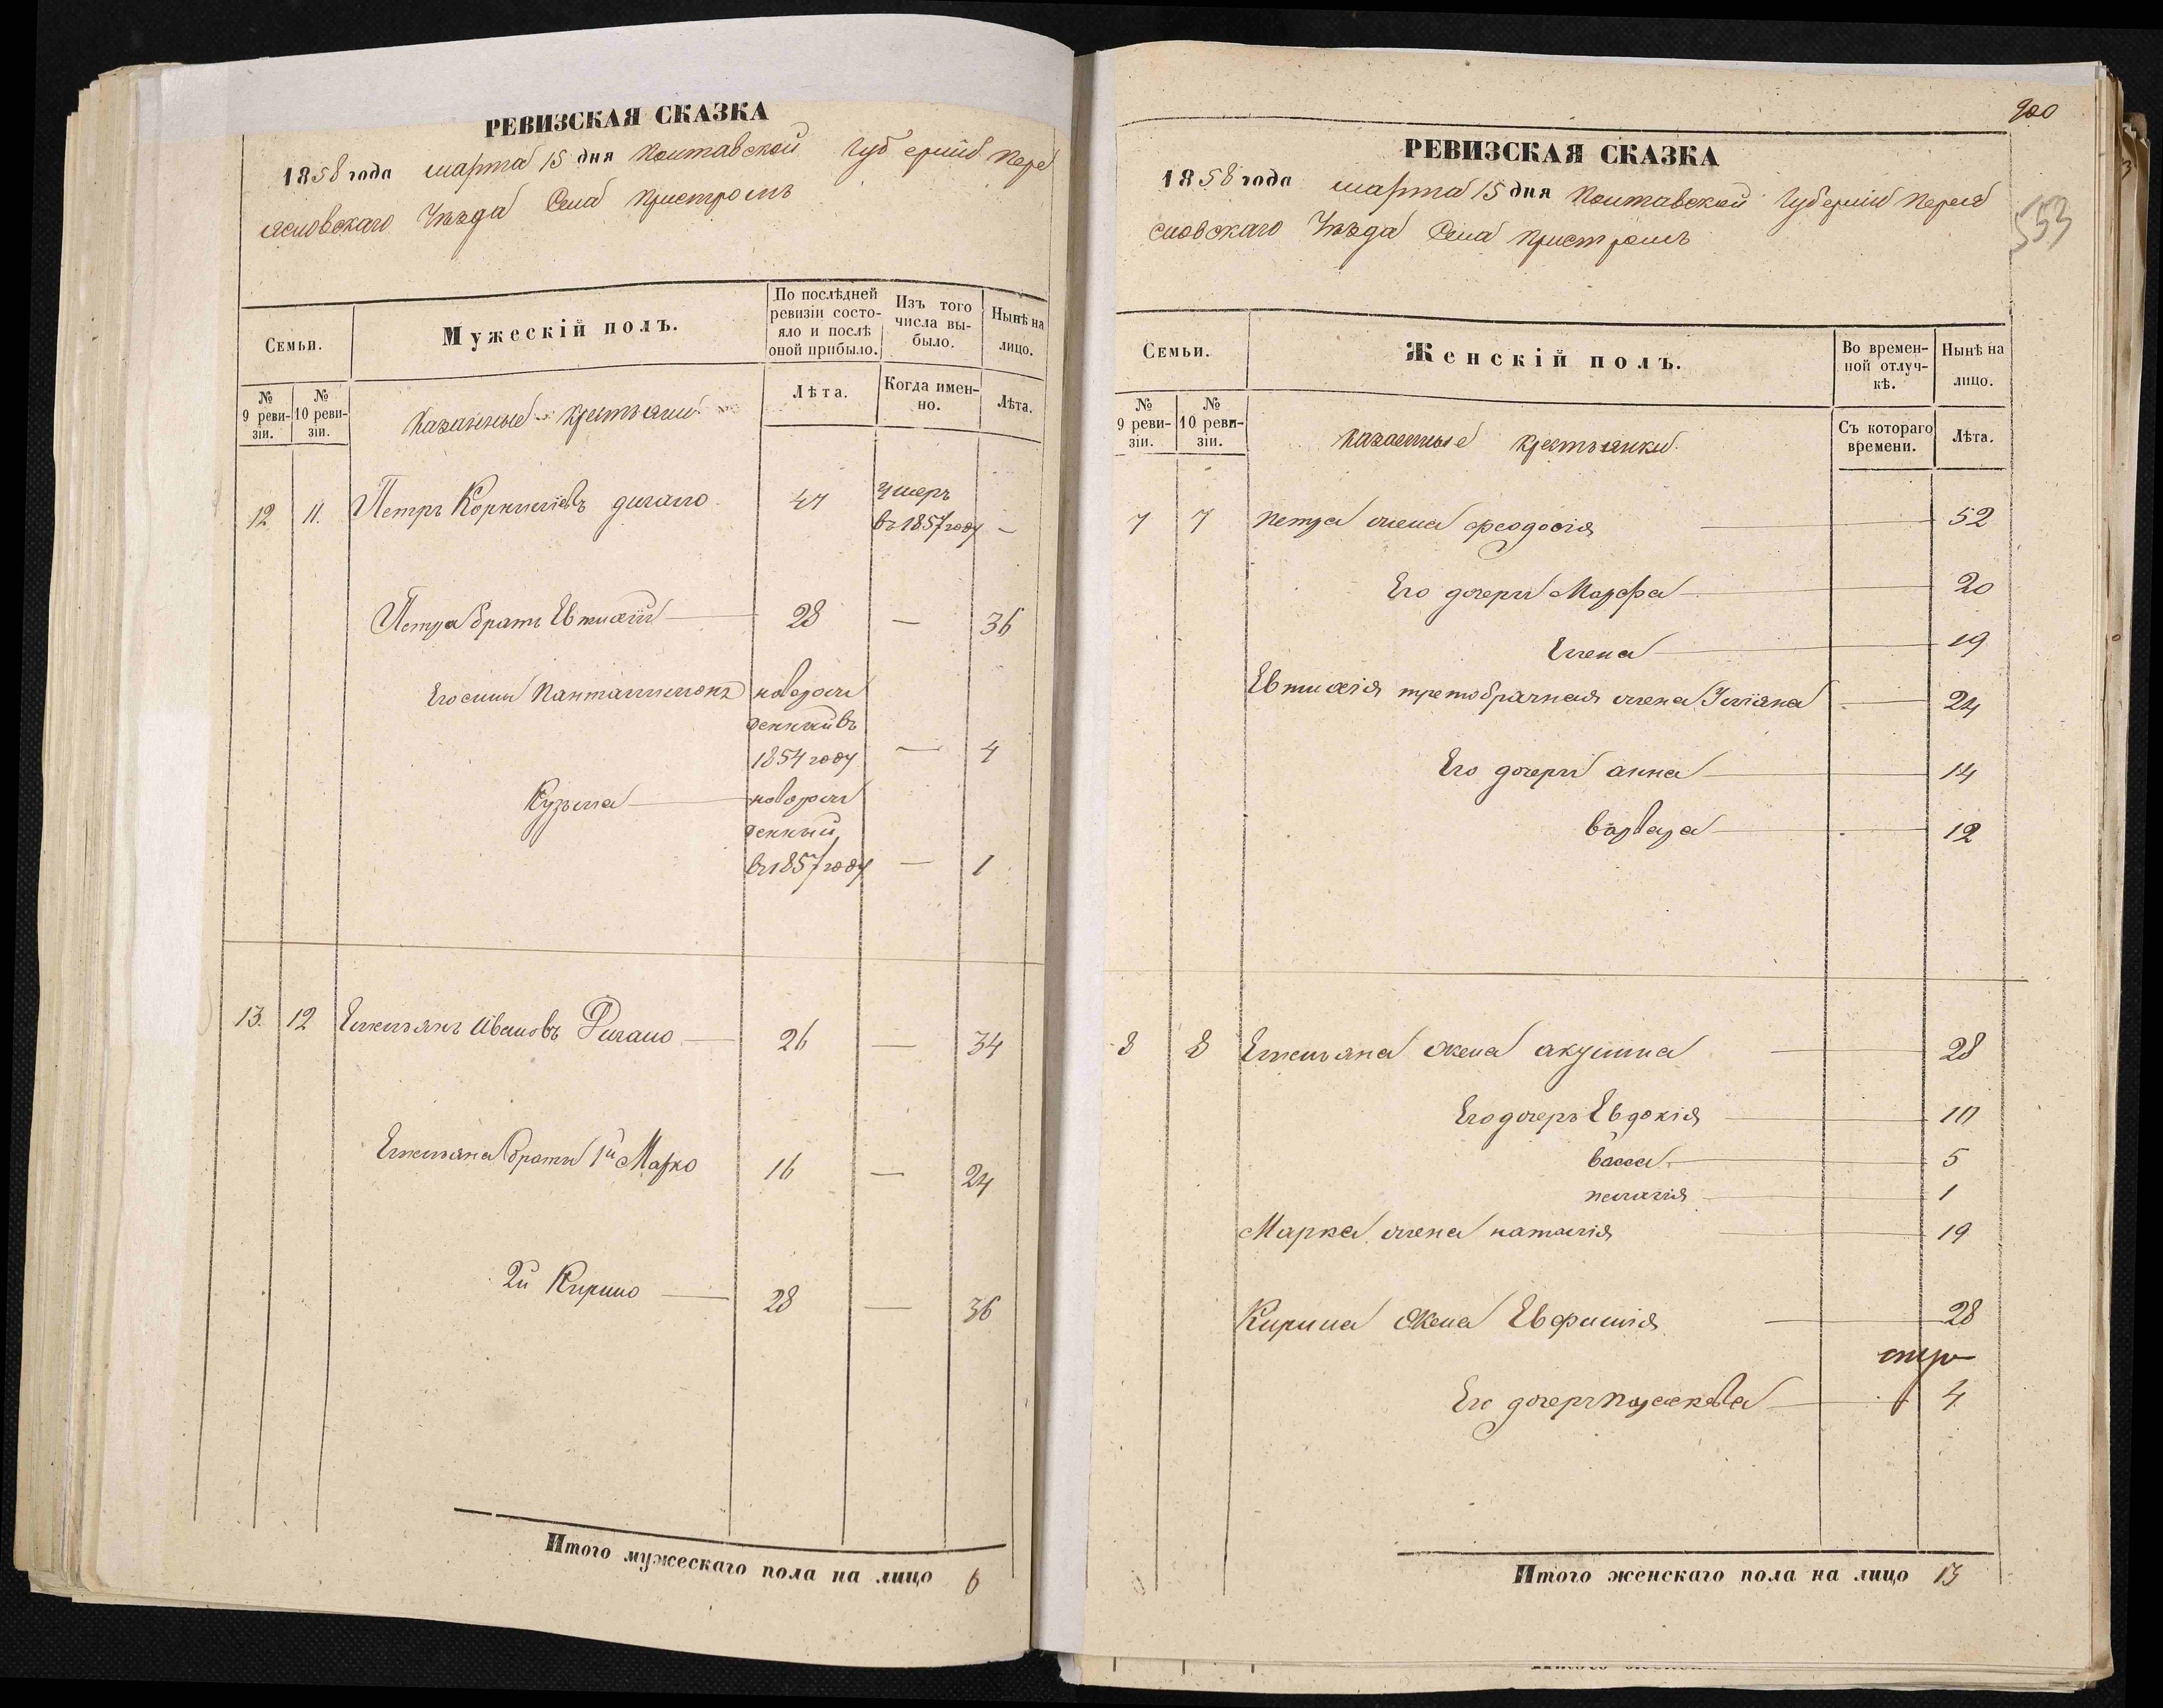 РЕВИЗСКАЯ СКАЗКА
1858 года марта 15 дня Полтавской Губерніи Пере
яславскаго Уѣзда Села Пристромъ
Семьи.
Мужескій полъ.
По послѣдней ревизіи состояло и послѣ оной прибыло.
Изъ того числа выбыло.
Нынѣ на лицо.
№ 9 ревизіи.
№ 10 ревизіи.
Казенные крестьяне
Лѣта.
Когда именно.
Лѣта.
12 11. Петръ Корниліевъ дигало 47 умеръ
въ 1857 году –
Петра братъ Евтихій 28 — 36
Его сыны Пантелимонъ новорож
денный въ
1854 году — 4
Кузьма новорож
денный
въ 1857 году — 1
13. 12 Емельянъ Ивановъ Дигало 26 — 34
Емельяна братья 1й Марко 16 — 24
2й Кирило 28 — 36
Итого мужескаго пола на лицо 6
900
553
РЕВИЗСКАЯ СКАЗКА
1858 года марта 15 дня Полтавской Губерніи Перея
славскаго Уѣзда Села Пристромъ
Семьи.
Женскій полъ.
Во временной отлучкѣ.
Нынѣ на лицо.
№ 9 ревизіи.
№ 10 ревизіи.
Казенные крестьянки.
Съ котораго времени.
Лѣта.
7 7 Петра жена феодосія 52
Его дочери Марфа 20
Елена 19
Евтихія третобрачная жена Уліяна 24
Его дочери анна 14
варвара 12
8 8 Емельяна жена акулина 28
Его дочерь Евдокія 10
васса 5
пелагія 1
Марка жена наталія 19
Кирила жена Евфимія 28
Его дочерь параскева 4
Итого женскаго пола на лицо 13